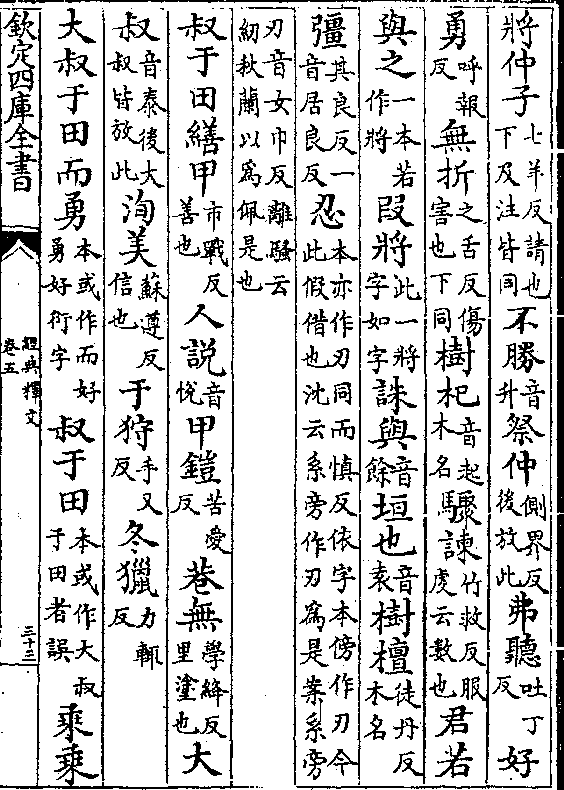 將仲子七羊反請也下及注皆同不勝音升祭仲側界反後放此弗聽吐丁反好
勇呼報反無折之舌反傷害也下同樹杞音起木名驟諫竹救反服虔云數也君若
與之一本若作將段將此一將字如字誅與音餘垣也音袁樹檀徒丹反木名
彊其良反一音居良反忍本亦作刃同而慎反依字本傍作刃今此假借也沈云系旁作刃為是案系旁
刃音女巾反離騷云紉秋蘭以為佩是也
叔于田繕甲市戰反善也人說音悅甲鎧苦愛反巷無學絳反里塗也大
叔音泰後大叔皆放此洵美蘇遵反信也于狩手又反冬獵力輒反
大叔于田而勇本或作而好勇好衍字叔于田本或作大叔于田者誤乘乘
欽定四庫全書
經典釋文
卷五
三十三